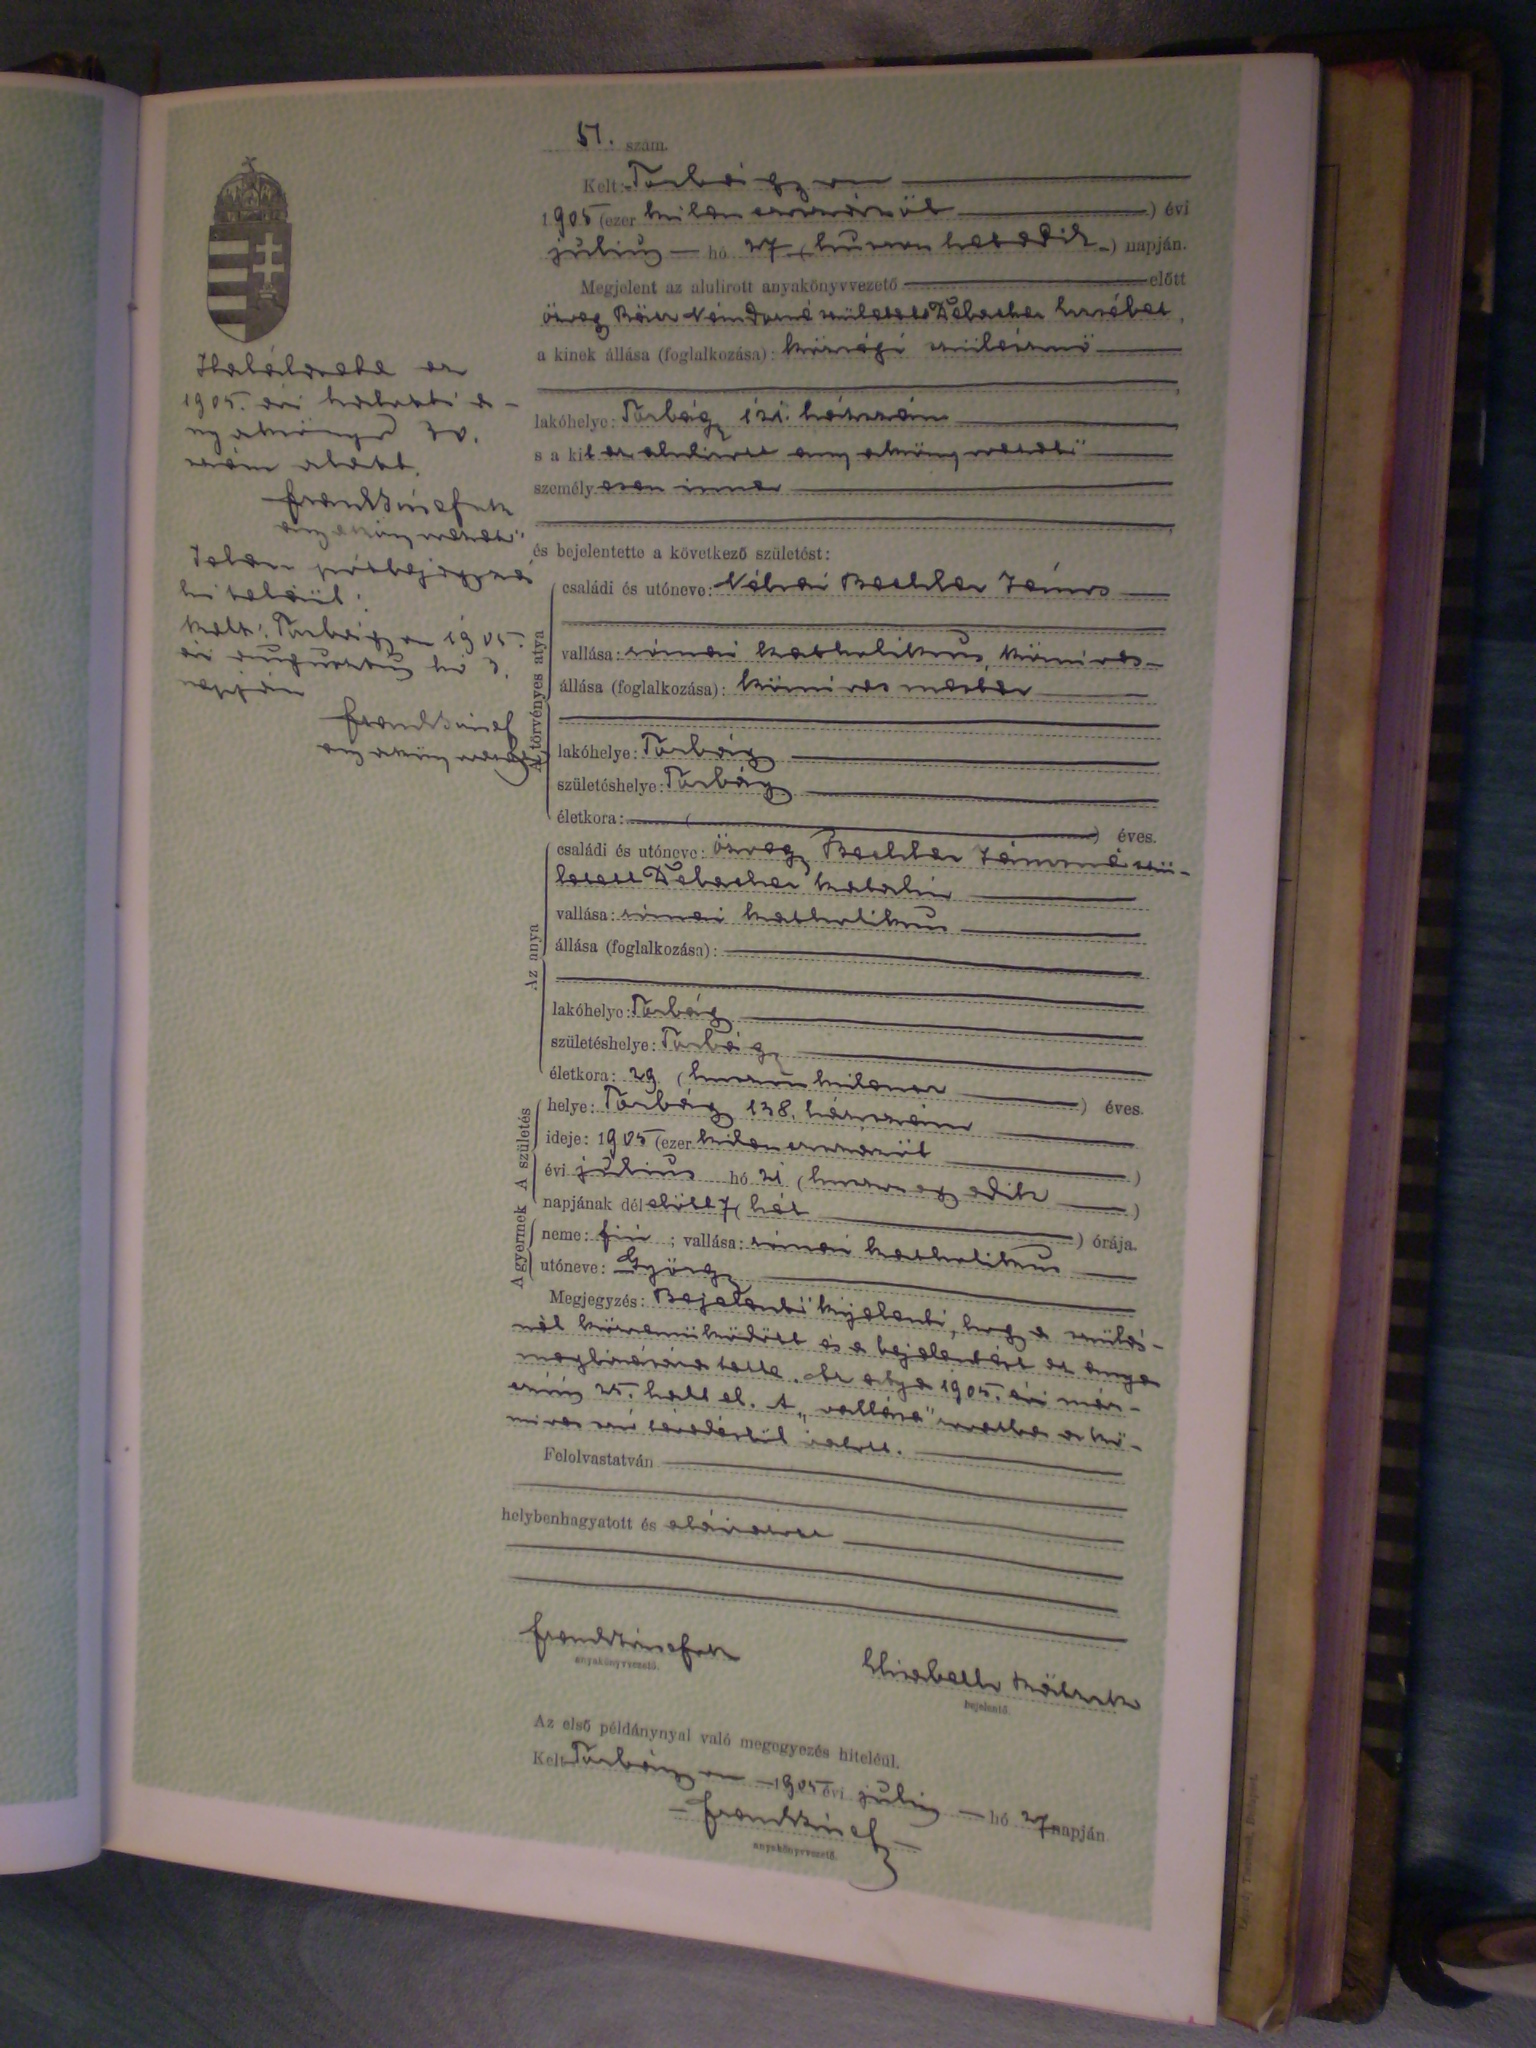 51. szám.
Kelt: Torbágyon
1905 (ezer kilencszázöt) évi
július hó 27 (huszonhetedik) napján.
Megjelent az alulirott anyakönyvvezető előtt
özvegy született Erzsébet,
a kinek állása (foglalkozása): községi szülésznő
lakóhelye: Torbágy 121. házszám
s a kit az alulirott anyakönyvvezető
személyesen ismer
és bejelentette a következő születést:
Az törvényes atya
családi és utóneve: Néhai Bechler János
vallása: római katholikus, kőmives
állása (foglalkozása): kőmives mester
lakóhelye: Torbágy
születéshelye: Torbágy
életkora: ( ) éves.
Az anya
családi és utóneve: özvegy Bechler Jánosné szü-
letett Katalin
vallása: római katholikus
állása (foglalkozása):
lakóhelye: Torbágy
születéshelye: Torbágy
életkora: 29 (huszonkilenc) éves.
A születés
helye: Torbágy 138. házszám
ideje: 1905 (ezer kilencszázöt)
évi július hó 21 (huszonegyedik)
napjának délelőtt 7 (hét) órája.
A gyermek
neme: fiú ; vallása: római katholikus
utóneve: György
Megjegyzés: Bejelentő kijelenti, hogy a szülés-
nél közreműködött és a bejelentést az anya
megbízására tette. Az atya 1905. évi már-
czius 25. halt el. A „vallása" rovatba a kő-
mives szó tévedésből iratott.
Felolvastatván
helybenhagyatott és aláiratott
anyakönyvvezető.
bejelentő.
Az első példánynyal való megegyezés hiteléül.
Kelt Torbágyon 1905 évi július hó 27 napján
anyakönyvvezető.
Halálesete az
1905. évi halotti a-
nyakönyv 30.
szám alatt.
anyakönyvvezető
Jelen utólbejegyzés
hiteléül:
Kelt: Torbágyon 1905.
évi augusztus hó 3.
napján
anyakönyvvezető